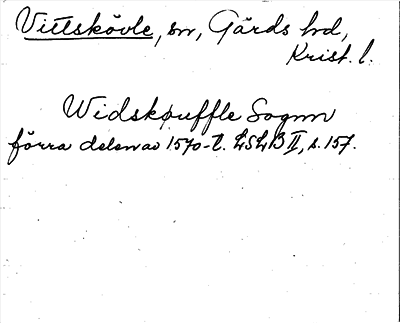 Vittskövle, sn, Gärds hd,
Krist. l.
Widskøuffle Sognn
förra delen av 1570-t. LSLB II, s. 157.